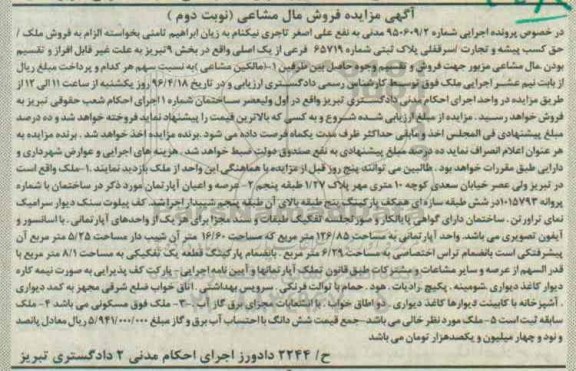 آگهی مزایده فروش مال مشاعی (نوبت دوم )
در خصوص پرونده اجرایی شماره ۹۵۰۶۰۹/۲ مدنی به نفع علی اصغر تاجری نیکنام به زیان ابراهیم ثامنی بخواسته الزام به فروش ملک /
حق کسب پیشه و تجارت /سرقفلی پلاک ثبتی شماره ۶۵۷۱۹ فرعی از یک اصلی واقع در بخش ۹تبریز به علت غیر قابل افراز و تقسیم
بودن .مال مشاعی مزبور جهت فروش و تقسیم وجوه حاصل بین طرفین ۱-(مالکین مشاعی )به نسبت سهم هر کدام و پرداخت مبلغ ریال
از بابت نیم عشر اجرایی ملک فوق توسط کارشناس رسمی دادگستری ارزیابی و در تاریخ ۹۶/۴/۱۸ روز یکشنبه از ساعت ۱۱ الی ۱۲ از
طریق مزایده در واحد اجرای احکام مدنی دادگستری تبریز واقع در اول ولیعصر ساختمان شماره ۱اجرای احکام شعب حقوقی تبریز به
فروش خواهد رسید . مزایده از مبلغ ارزیابی شده شروع و به کسی که بالاترین قیمت را پیشنهاد نماید فروخته خواهد شد و ده درصد
مبلغ پیشنهادی فی المجلس اخذ و مابقی حداکثر ظرف مدت یکماه فرصت داده می شود .برنده مزایده اخذ خواهد شد . برنده مزایده به
هر عنوان اعلام انصراف نماید ده درصد مبلغ پیشنهادی به نفع صندوق دولت ضبط خواهد شد . هزینه های اجرایی و عوارض شهرداری و
دارایی طبق مقررات خواهد بود . طالبین می توانند پنج روز قبل از مزایده با هماهنگی این واحد از ملک بازدید نمایند .۱-ملک واقع است
در تبریز ولی عصر خیابان سعدی کوچه ۱۰ متری مهر پلاک ۱/۲۷ طبقه پنجم ۲- عرصه و اعیان آپارتمان مورد ذکر در ساختمان با شماره
پروانه ۱۰۱۵۷۹۳در شش طبقه سازه ای همکف پارکینگ پنج طبقه بالای آن طبقه پنجم شیبدار اجرا شد. کف پیلوت سنگ دیوار سرامیک
نمای تراورتن . ساختمان دارای گواهی پایانکار و صورتجلسه تفکیک طبقات و سند مجزا برای هر یک از واحدهای آپارتمانی . با آسانسور و
آیفون تصویری می باشد. واحد آپارتمانی به مساحت ۱۳۶/۸۵ متر مربع که مساحت ۱۶/۶۰ متر آن شیب دار مساحت ۵/۲۵ متر مربع آن
پیشرفتگی است بانضمام تراس اختصاصی به مساحت ۶/۲۹ متر مربع . بانضمام پارکینگ قطعه یک تفکیکی به مساحت ۸/۱ متر مربع با
قدر السهم از عرصه و سایر مشاعات و مشترکات طبق قانون تملک آپارتمانها و آیین نامه اجرایی – پارکت کف پذیرایی به صورت نیمه کاره
دیوار کاغذ دیواری .شومینه . پکیج .رادیات . هود . حمام با توالت فرنگی . سرویس بهداشتی . اتاق خواب ضلع شرقی مجهز به کمد دیواری
. آشپزخانه با کابینت دیوارها کاغذ دیواری . دو اطاق خواب . با انشعابات مجزای برق گاز آب ۳- ملک فوق مسکونی می باشد ۴- ملک
سابقه ثبت است ۵- ملک مورد نظر خالی می باشد – جمع قیمت شش دانگ با احتساب آب برق و گاز مبلغ ۵/۹۴۱/۰۰۰/۰۰۰ ریال معادل پانصد
و نود و چهار میلیون و یکصدهزار تومان می باشد
ح/ ۲۲۴۴ دادورز اجرای احکام مدنی ۲ دادگستری تبریز